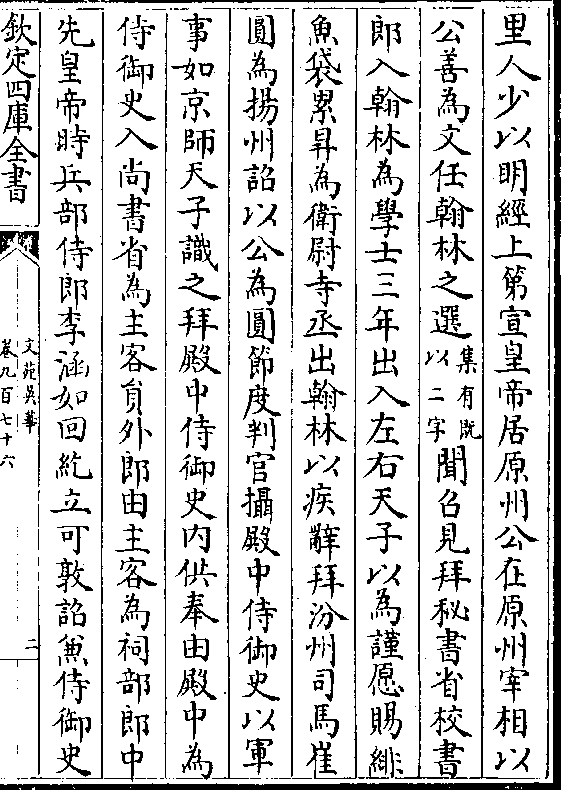 里人少以明經上第宣皇帝居原州公在原州宰相以
公善為文任翰林之選集有既以二字聞召見拜秘書省校書
郎入翰林為學士三年出入左右天子以為謹愿賜緋
魚袋累昇為衛尉寺丞出翰林以疾辭拜汾州司馬崔
圓為揚州詔以公為圓節度判官攝殿中侍御史以軍
事如京師天子識之拜殿中侍御史內供奉由殿中為
侍御史入尚書省為主客員外郎由主客為祠部郎中
先皇帝時兵部侍郎李涵如回紇立可敦詔兼侍御史
欽定四庫全書
文苑英華
卷九百七十六
二